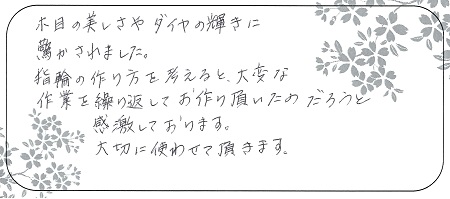 木目の美しさや ダイヤの輝きに
驚かされました。
指輪の作り方を考えると、大変な
作業を繰り返してお作り頂いたのだろうと
感激しております。
大切に使わせて頂きます。